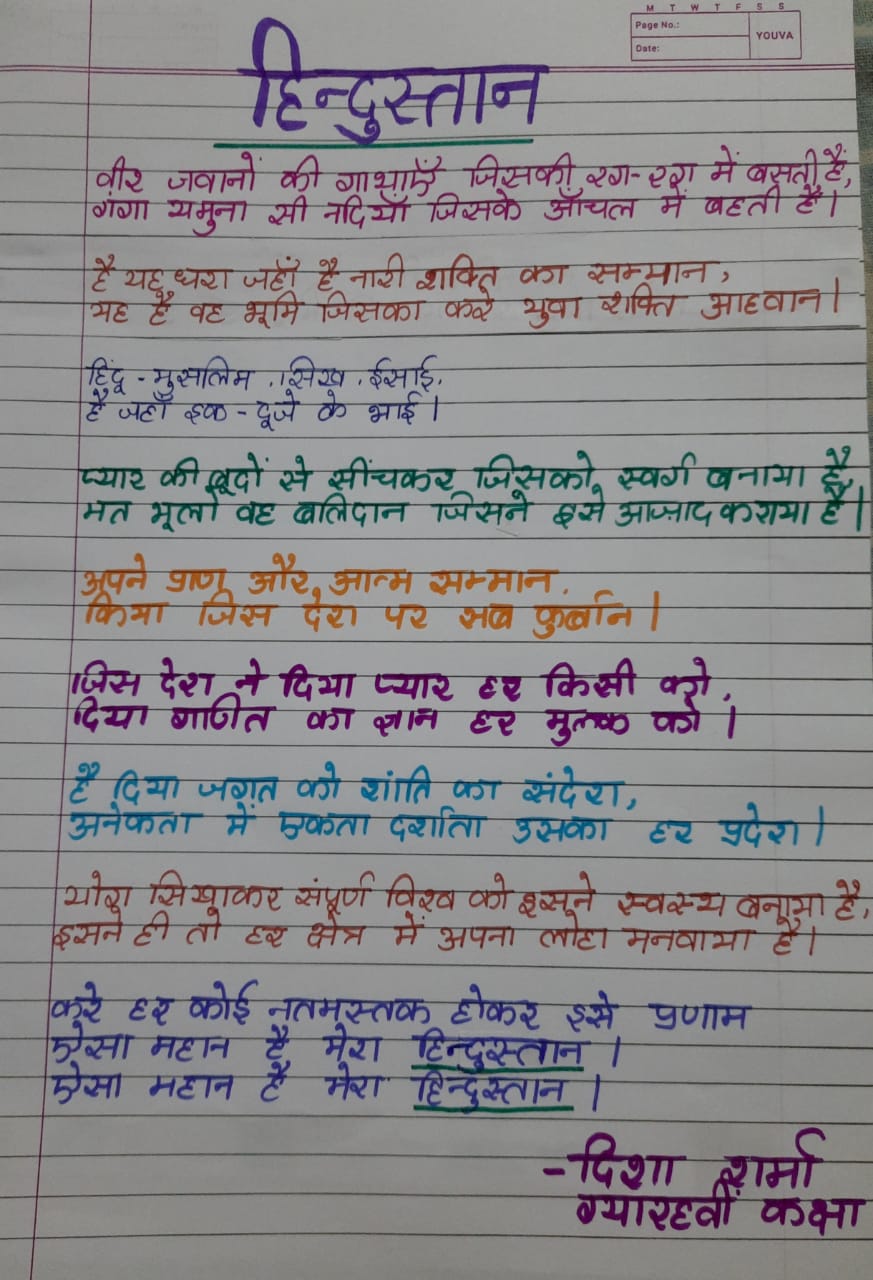 M T W T F S S
Page No.:
Date:
YOUVA
हिन्दुस्तान
वीर जवानों की गाथाएँ जिसकी रग-रग में बसती हैं,
गंगा यमुना सी नदियाँ जिसके आँचल में बहती हैं।
है यह धरा जहाँ है नारी शक्ति का सम्मान,
यह है वह भूमि जिसका करे युवा शक्ति आहवान।
हिंदू-मुसलिम, सिख, ईसाई,
है जहाँ इक-दूजे के भाई।
प्यार की बूदों से सींचकर जिसको स्वर्ग बनाया है,
मत भूलो वह बलिदान जिसने इसे आज़ाद कराया है।
अपने प्राण और आत्म सम्मान,
किया जिस देश पर सब कुर्बान।
जिस देश ने दिया प्यार हर किसी को,
दिया गणित का ज्ञान हर मुल्क को।
है दिया जगत को शांति का संदेश,
अनेकता में एकता दर्शाता उसका हर प्रदेश।
योग सिखाकर संपूर्ण विश्व को इसने स्वस्थ बनाया है,
इसने ही तो हर क्षेत्र में अपना लोहा मनवाया है।
करे हर कोई नतमस्तक होकर इसे प्रणाम
ऐसा महान है मेरा हिन्दुस्तान।
ऐसा महान है मेरा हिन्दुस्तान।
-दिशा शर्मा
ग्यारहवीं कक्षा